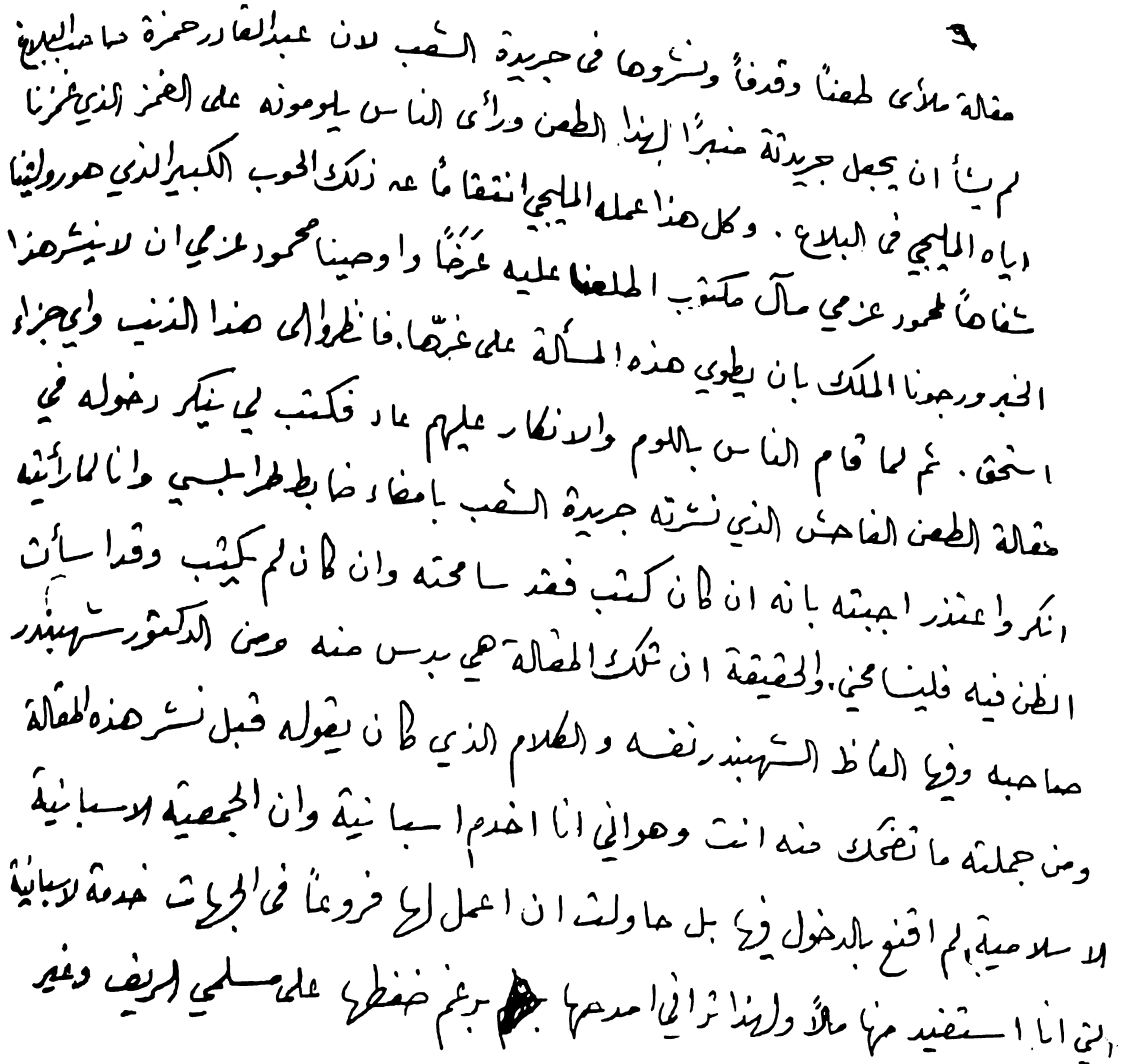 ٩
مقالة ملأى طعناً وقدفاً ونشروها فى جريدة الشعب لان عبدالقادر حمزة صاحب البلاغ
لم يشأ ان يجعل جريدتة منبرًا لهذا الطعن ورأى الناس يلومونه على الغمز الذي غمزنا
اياه المليجي فى البلاغ . وكل هذا عمله المليجي انتقامًا عن ذلك الحوب الكبير الذي هو روايتنا
شفاهاً لمحمود عزمي مآل مكتوب اطلعنا عليه عَرَضًا واوصينا محمود عزمي ان لا ينشر هذا
الخبر ورجونا الملك بان يطوي هذه المسألة على غرّها. فانظروا الى هذا الذنب واي جزاء
استحق . ثم لما قام الناس باللوم والانكار عليهم عاد فكتب لي ينكر دخوله في
مقالة الطعن الفاحش الذي نشرته جريدة الشعب بامضاء ضابط طرابلسي وانا لما رأيته
انكر واعتذر اجبته بانه ان كان كتب فقد سامحته وان كان لم يكتب وقد اسأت
الظن فيه فليسامحني. والحقيقة ان تلك المقالة هي بدس منه ومن الدكتور شهبندر
صاحبه وفيها الفاظ الشهبندر نفسه والكلام الذي كان يقوله قبل نشر هذه المقالة
ومن جملته ما تضحك منه انت وهو اني انا اخدم اسبانية وان الجمعية الاسبانية
الاسلامية لم اقنع بالدخول فيها بل حاولت ان اعمل لها فروعاً فى الجهات خدمة لاسبانية
التي انا استفيد منها مالاً ولهذا تراني امدحها برغم ضغطها على مسلمي الريف وغير